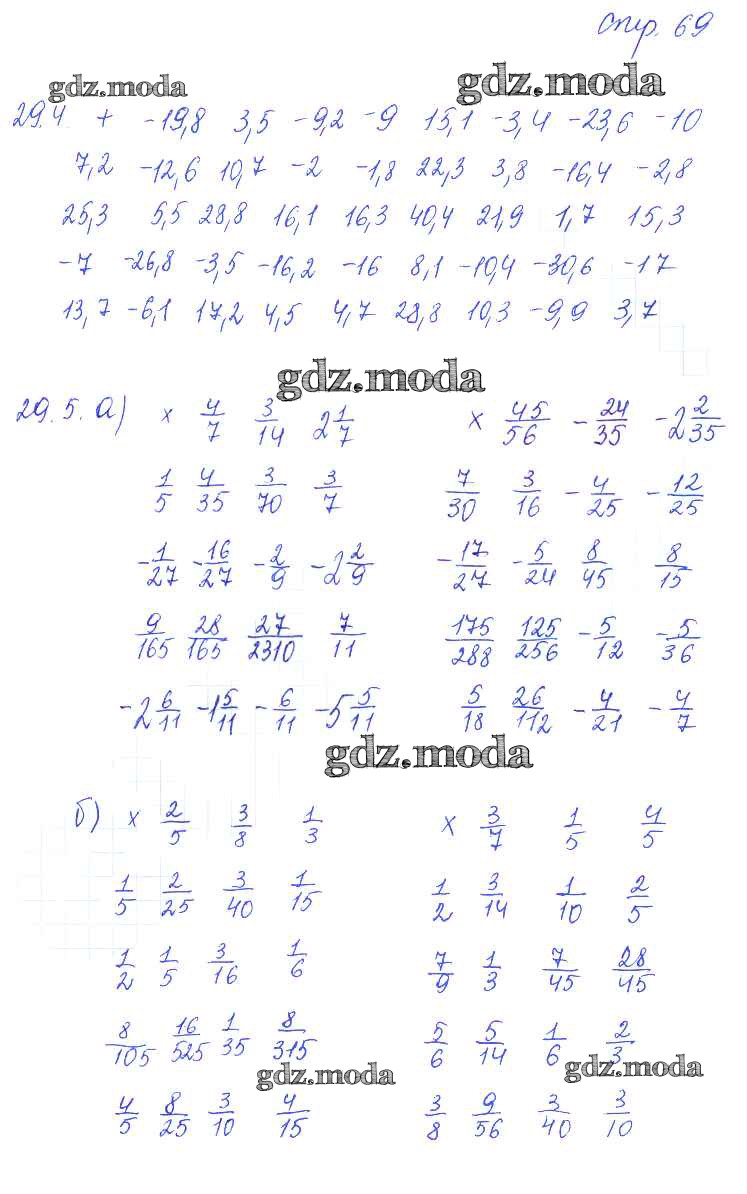 стр. 69
gdz.moda gdz.moda
29.4 + -19,8 3,5 -9,2 -9 15,1 -3,4 -23,6 -10
7,2 -12,6 10,7 -2 -1,8 22,3 3,8 -16,4 -2,8
25,3 5,5 28,8 16,1 16,3 40,4 21,9 1,7 15,3
-7 -26,8 -3,5 -16,2 -16 8,1 -10,4 -30,6 -17
13,7 -6,1 17,2 4,5 4,7 28,8 10,3 -9,9 3,7
gdz.moda
29.5. а) × 4/7 3/14 2 1/7 × 45/56 -24/35 -2 2/35
1/5 4/35 3/70 3/7 7/30 3/16 -4/25 -12/25
-1/27 -16/27 -2/9 -2 2/9 -17/27 -5/24 8/45 8/15
9/165 28/165 27/2310 7/11 175/288 125/256 -5/12 -5/36
-2 6/11 -1 5/11 -6/11 -5 5/11 5/18 26/112 -4/21 -4/7
gdz.moda
б) × 2/5 3/8 1/3 × 3/7 1/5 4/5
1/5 2/25 3/40 1/15 1/2 3/14 1/10 2/5
1/2 1/5 3/16 1/6 7/9 1/3 7/45 28/45
8/105 16/525 1/35 8/315 5/6 5/14 1/6 2/3
gdz.moda gdz.moda
4/5 8/25 3/10 4/15 3/8 9/56 3/40 3/10